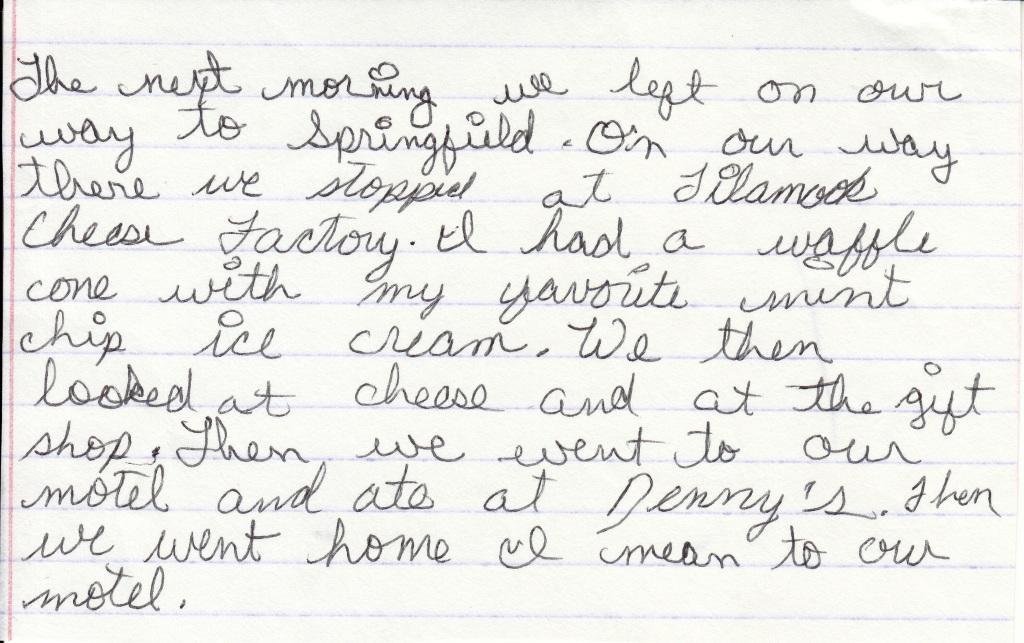 The next morning we left on our
way to Springfield. On our way
there we stopped at Tilamook
Cheese Factory. I had a waffle
cone with my favorite mint
chip ice cream. We then
looked at cheese and at the gift
shop. Then we went to our
motel and ate at Denny's. Then
we went home I mean to our
motel.